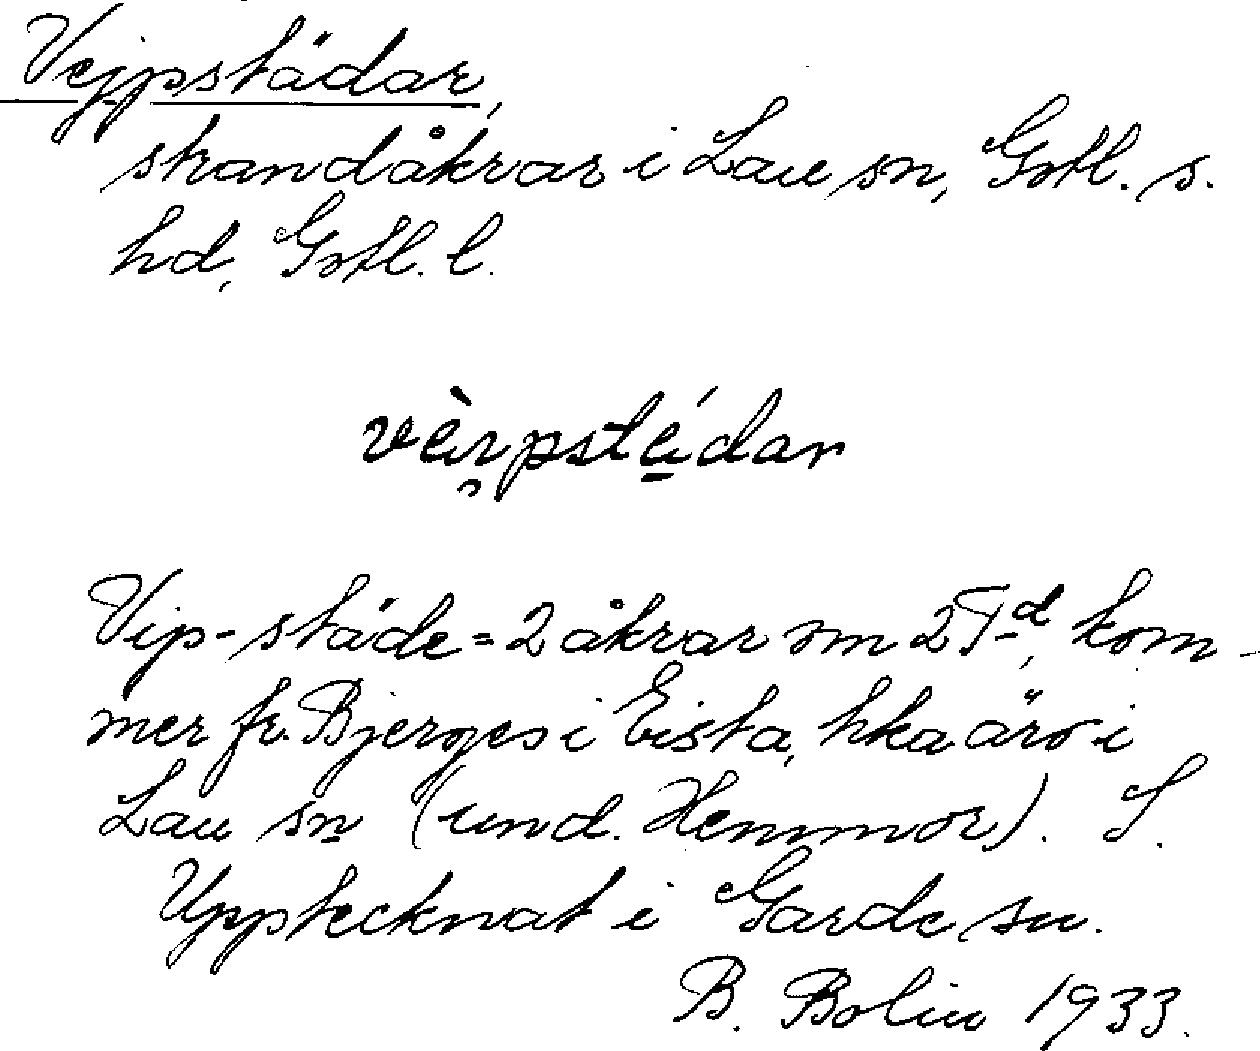 Vejpstädar,
strandåkrar i Lau sn, Gotl. s.
hd, Gotl. l.
vèi̯pstédar
Vip-städe = 2 åkrar om 2 T-d, kom-
mer fr. Bjerges i Eista, hka äro i
Lau sn (und. Hemmor). S.
Upptecknat i Garde sn.
B. Bolin 1933.